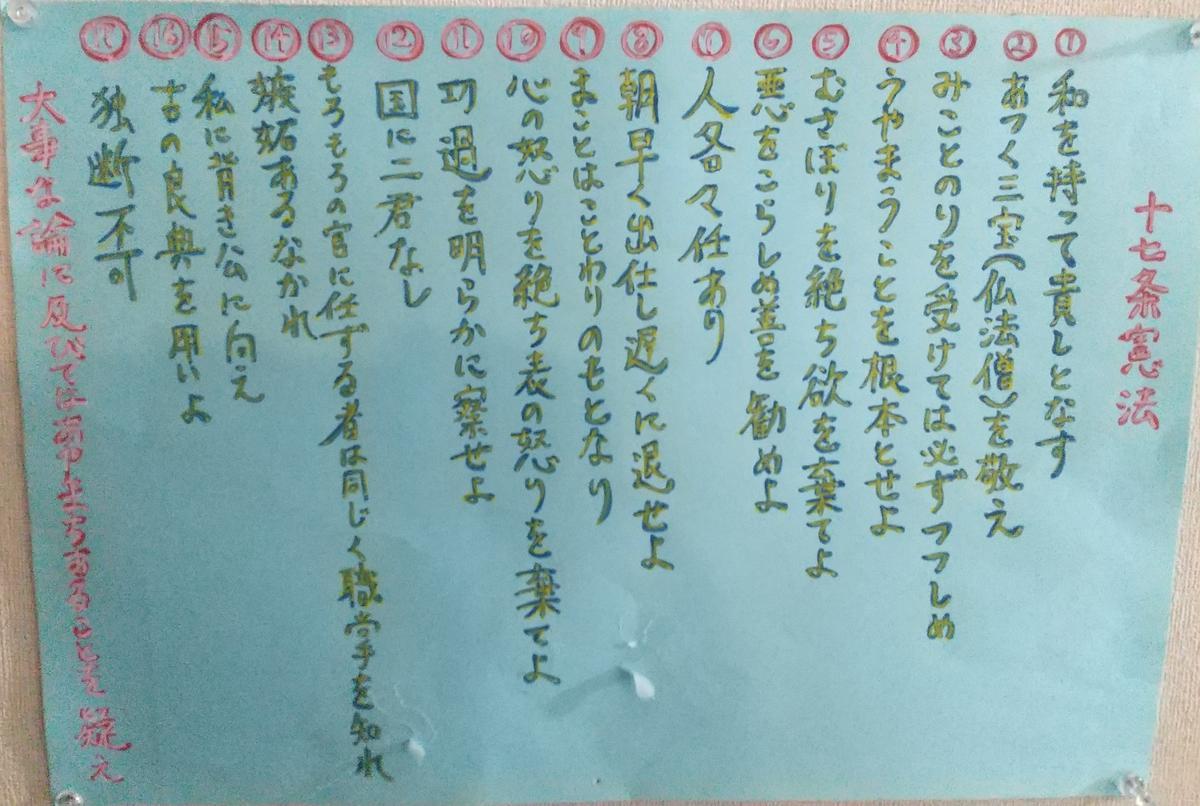 十七条憲法
① 和を持って貴しとなす
② あつく三宝(仏法僧)を敬え
③ みことのりを受けては必ずつつしめ
④ うやまうことを根本とせよ
⑤ むさぼりを絶ち欲を棄てよ
⑥ 悪をこらしめ善を勧めよ
⑦ 人各々任あり
⑧ 朝早く出仕し遅くに退せよ
⑨ まことはことわりのもとなり
⑩ 心の怒りを絶ち表の怒りを棄てよ
⑪ 功過を明らかに察せよ
⑫ 国に二君なし
⑬ もろもろの官に任ずる者は同じく職掌を知れ
⑭ 嫉妬あるなかれ
⑮ 私に背き公に向え
⑯ 古の良典を用いよ
⑰ 独断不可
大事な論に及びては過ちあることを疑え